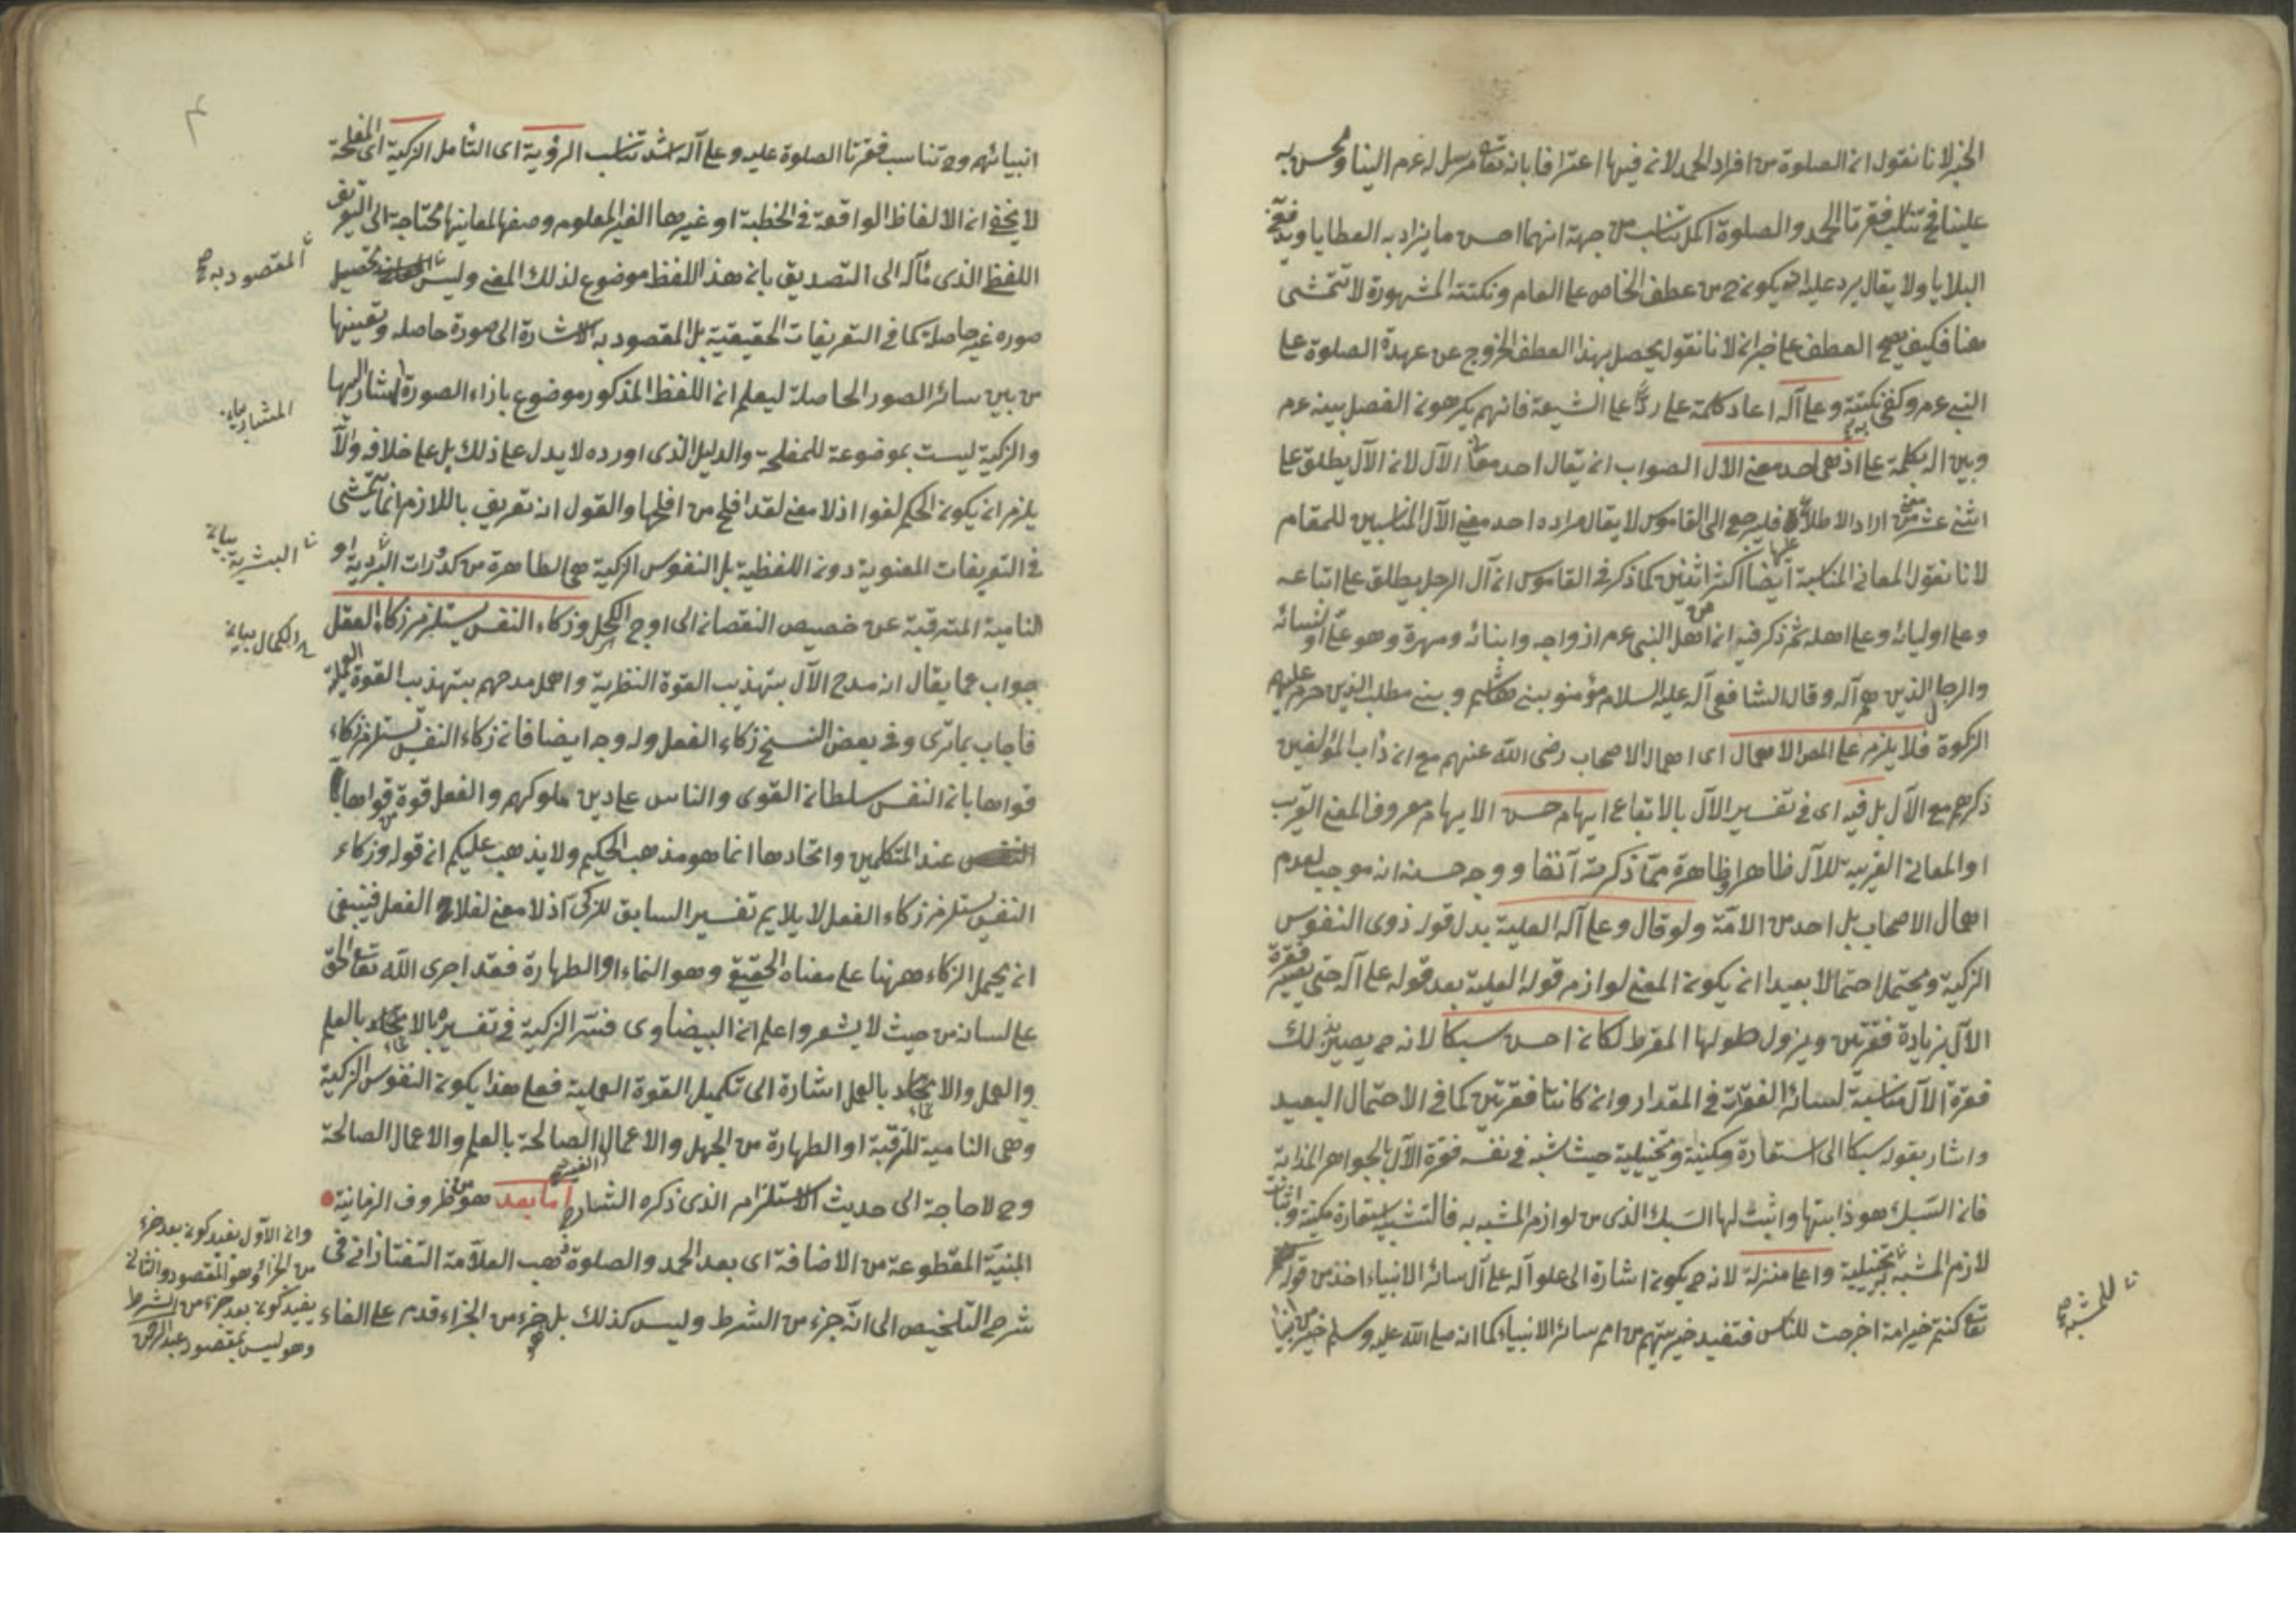 الخبر لانا نقول ان الصلوة من افراد الحمد لانه فيها اعترافا بانه تعالى مرسل له عم الينا ومحسن به
علينا فح تناسب فقرتا الحمد والصلوة اكمل تناسب من جهة انهما احسن ما يزاد به العطايا ويدفع
البلايا ولا يقال يرد عليه انه يكون ح من عطف الخاص على العام ونكتته المشهورة لا تتمشى
هنا فكيف يصح العطف على خبر ان لانا نقول يحصل بهذا العطف الخروج عن عهدة الصلوة على
النبي عم وكفى به نكتة وعلى آله اعاد كلمة على ردا على الشيعة فانهم يكرهون الفصل بينه عم
وبين اله بكلمة على اذ هي احد معنى الال الصواب ان يقال احد معاني الآل لان الآل يطلق على
اثنى عشر معنى من اراد الاطلاع فليرجع الى القاموس لا يقال مراده احد معنى الآل المناسبين للمقام
لانا نقول المعاني المناسبة ايضا اكثر من اثنين كما ذكر في القاموس ان آل الرجل يطلق على اتباعه
وعلى اوليائه وعلى اهله ثم ذكر فيه ان اهل النبي عم ازواجه وابنائه وصهره وهو على او نسائه
والرجال الذين هم آله وقال الشافعي آله عليه السلام مؤمنو بنى هاشم وبنى مطلب الذين حرم عليهم
الزكوة فلا يلزم على المص الاهمال اى اهمال الاصحاب رضى الله عنهم مع ان دأب المؤلفين
ذكرهم مع الآل بل فيه اى في تفسير الآل بالاتباع ايهام حسن الايهام معروف المعنى القريب
او المعاني القريبة للآل ظاهر او ظاهرة مما ذكرته آنفا ووجه حسنه انه موجب لعدم
اهمال الاصحاب بل احد من الامة ولو قال وعلى آله العلية بدل قوله ذوى النفوس
الزكية ويحتمل احتمالا بعيدا ان يكون المعنى لو ازم قوله العلية بعد قوله على آله حتى يصير فقرة
الآل بزيادة فقرتين ويزول طولها المفرط لكان احسن سبكا لانه ح يصير بذلك
فقرة الآل مناسبة لسائر الفقرات في المقدار وان كانتا فقرتين كما في الاحتمال البعيد
واشار بقوله سبكا الى استعارة مكنية وتخييلية حيث شبه في نفسه فقرة الآل بالجواهر المذابة
فان السبك هو ذابتها واثبت لها السبك الذى من لوازم المشبه به فالتشبيه استعارة مكنية واثبات
لازم المشبه به تخييلية واعلى منزلة لانه ح يكون اشارة الى علو آله على آل سائر الانبياء اخذ من قوله
تعالى كنتم خير امة اخرجت للناس فتفيد خيريتهم من امم سائر الانبياء كما انه صلى الله عليه وسلم خير من
للمشبه صح
انبيائهم وح تناسب فقرتا الصلوة عليه وعلى آله اشد تناسب الرؤية اى التأمل الزكية اى المفلحة
لا يخفى ان الالفاظ الواقعة في الخطبة او غيرها الغير المعلوم وصفها لمعانيها محتاجة الى التعريف
اللفظى الذى مآله الى التصديق بان هذا اللفظ موضوع لذلك المعنى وليس تحصيل
صورة غير حاصلة كما في التعريفات الحقيقية بل المقصود به الاشارة الى صورة حاصله وتعيينها
من بين سائر الصور الحاصلة ليعلم ان اللفظ المذكور موضوع بازاء الصورة المشار اليها
والزكية ليست بموضوعة للمفلحة والدليل الذى اورده لا يدل على ذلك بل على خلافه والا
يلزم ان يكون الحكم لغوا اذ لا معنى لقد افلح من افلحها والقول انه تعريف باللازم انما يتمشى
في التعريفات المعنوية دون اللفظية بل النفوس الزكية هي الطاهرة من كدورات البشرية او
النامية المترقية عن حضيض النقصان الى اوج الكمال وزكاء النفس يستلزم زكاء العقل
جواب عما يقال انه مدح الآل بتهذيب القوة النظرية واهمل مدحهم بتهذيب القوة العملية
فاجاب بما ترى وفي بعض النسخ زكاء الفعل وله وجه ايضا فان زكاء النفس يستلزم زكاء
قواها بان النفس سلطان القوى والناس على دين ملوكهم والفعل قوة من قواها
عند المتكلمين واتحادها انما هو مذهب الحكيم ولا يذهب عليكم ان قوله وزكاء
النفس يستلزم زكاء الفعل لا يلايم تفسير السابق للزكى اذ لا معنى لفلاح الفعل فينبغى
ان يحمل الزكاء ههنا على معناه الحقيقى وهو النماء او الطهارة فقد اجرى الله تعالى الحق
على لسانه من حيث لا يشعر واعلم ان البيضاوى فسر الزكية في تفسيره بالانماء بالعلم
والعمل والانماء بالعمل اشارة الى تكميل القوة العملية فعلى هذا يكون النفوس الزكية
وهى النامية المترقية او الطهارة من الجهل والاعمال الغير الصالحة بالعلم والاعمال الصالحة
وح لا حاجة الى حديث الاستلزام الذى ذكره الشارح اما بعد هو من ظروف الزمانية
المبنية المقطوعة من الاضافة اى بعد الحمد والصلوة ذهب العلامة التفتازانى في
شرح التلخيص الى انه جزء من الشرط وليس كذلك بل هو جزء من الجزاء قدم على الفاء
المقصود به صح
المشار بيانه
البشرية بيانه
الكمال بيانه
وان الاول يفيد كونه بعد جزء
من الجزاء وهو المقصود والثانى
يفيد كونه بعد جزء من الشرط
وهو ليس بمقصود